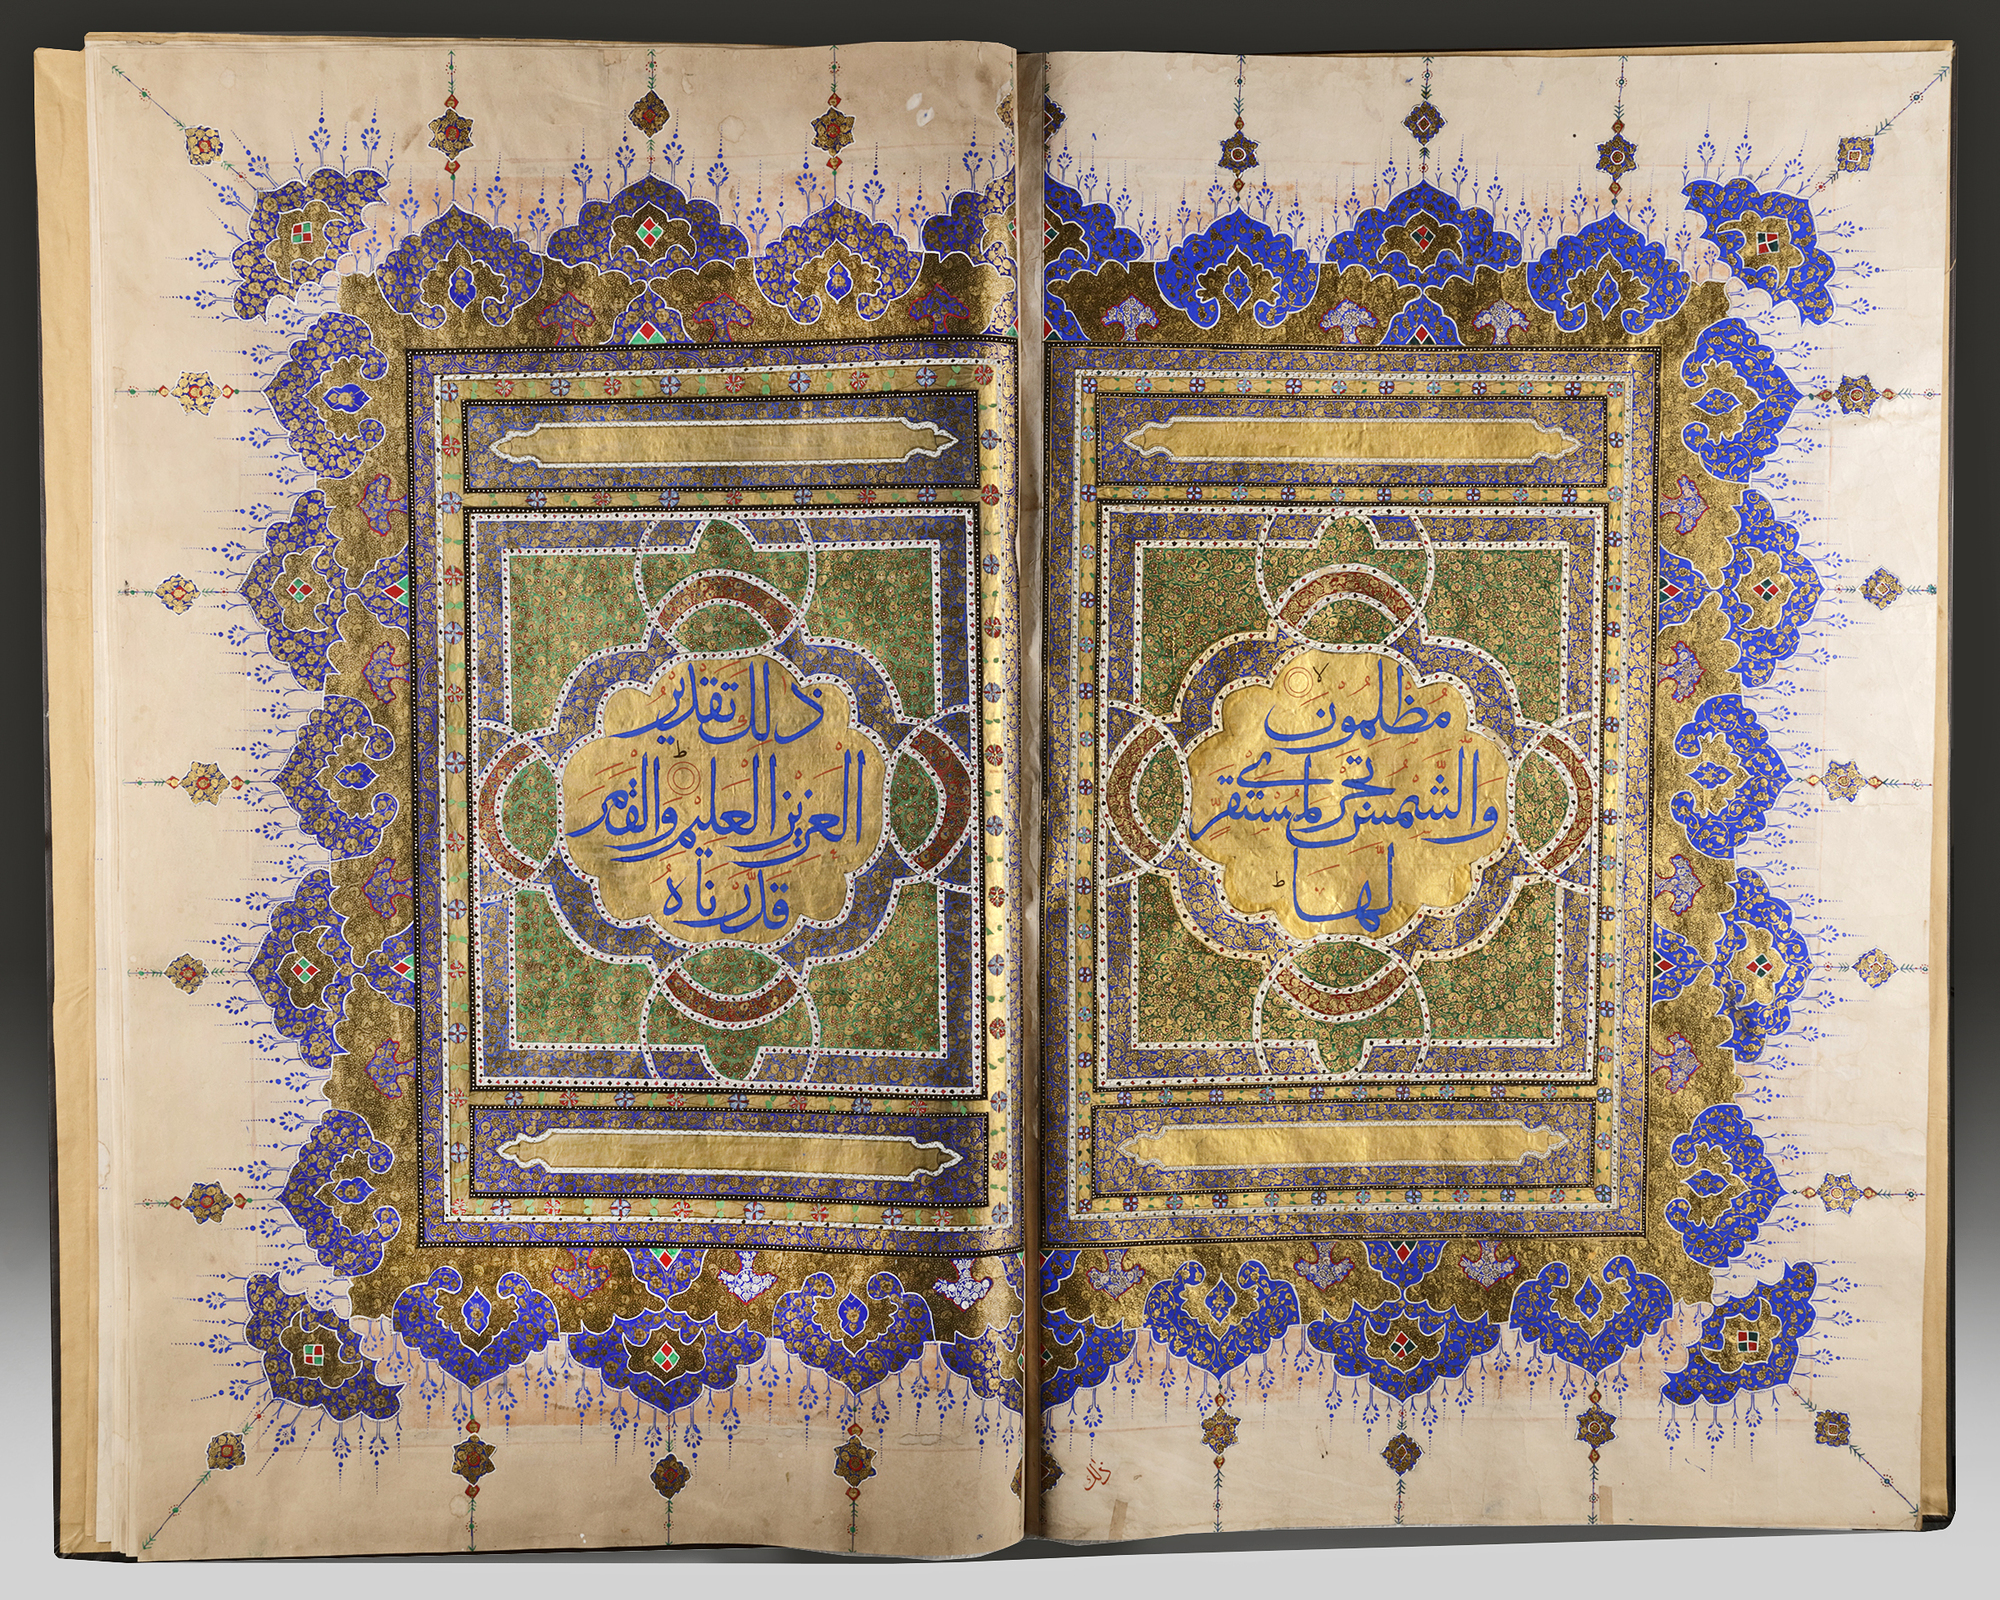 مُظْلِمُونَ لا
وَالشَّمْسُ تَجْرِي لِمُسْتَقَرٍّ
لَهَا ط
ذلك
ذَلِكَ تَقْدِيرُ
الْعَزِيزِ الْعَلِيمِ ط وَالْقَمَرَ
قَدَّرْنَاهُ